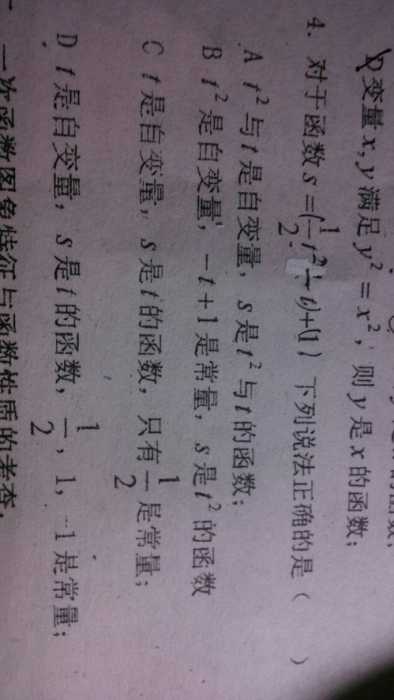 D变量x,y满足y²=x²,则y是x的函数;
4. 对于函数s=(½t²+(-t)+(1)下列说法正确的是( )
A t²与t是自变量,s是t²与t的函数;
B t²是自变量,-t+1是常量,s是t²的函数
C t是自变量,s是t的函数,只有½是常量;
D t是自变量,s是t的函数,½,1,-1是常量;
一次函数图象特征与函数性质的考查.